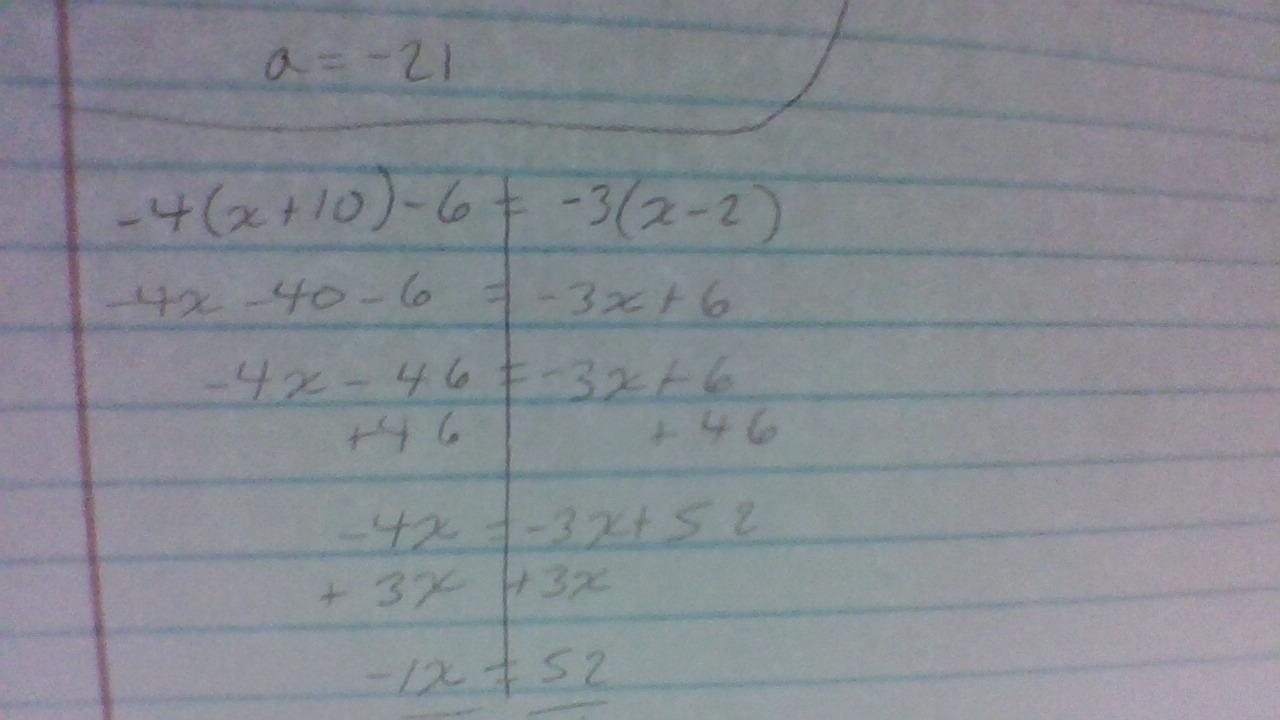 a = -21
-4(x+10)-6 = -3(x-2)
-4x -40 - 6 = -3x + 6
-4x - 46 = -3x + 6
+46 + 46
-4x = -3x + 52
+ 3x +3x
-1x = 52